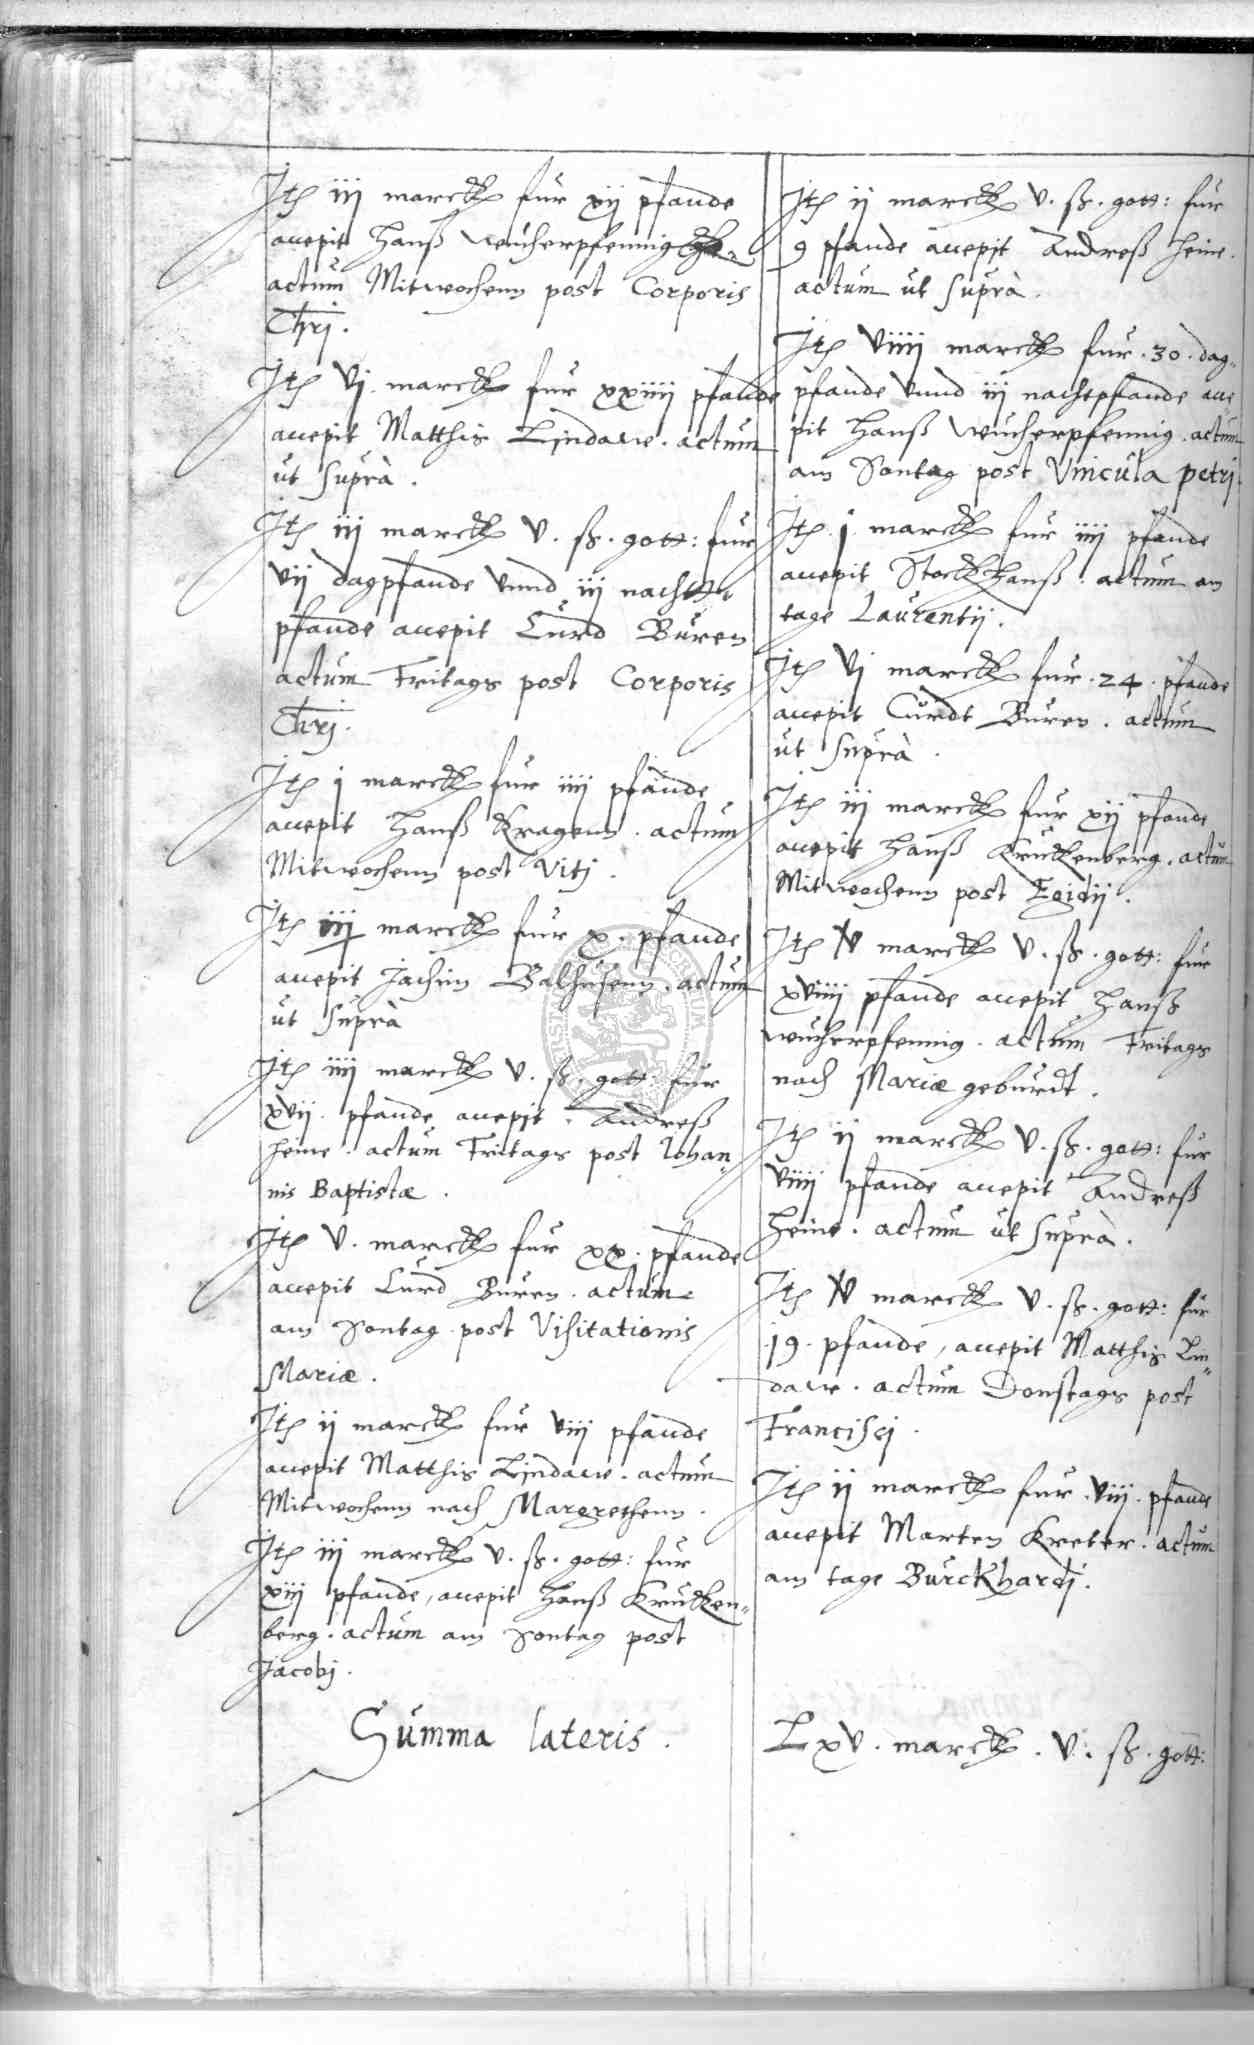 Jtem iij marck fur xij pfande
accepit Hanß Wucherpfennig
actum Mitwochenn post Corporis
Chrj.
Jtem vj marck fur xxiiij pfande
accepit Matthis Lindaw. actum
ut suprà.
Jtem iij marck v. ß. gott: fur
vij dagpfande vnnd iij nacht
pfande accepit Curd Buren
actum Fritags post Corporis
Chrj.
Jtem j marck fur iiij pfande
accepit Hanß Kragenn. actum
Mitwochenn post Vitj.
Jtem iij marck fur x. pfande
accepit Jachim Balhusenn. actum
ut suprà
Jtem iiij marck v. ß. gott: fur
xvij. pfande accepit. Andreß
Heine. actum Fritags post Johan„
nis Baptistæ.
Jtem v. marck fur xx. pfande
accepit Curd Buren. actum
am Sontag post Visitationis
Mariæ.
Jtem ij marck fur viij pfande
accepit Matthis Lindaw. actum
Mitwochenn nach Margrethenn.
Jtem iij marck v. ß. gott: fur
xiij pfande, accepit Hanß Krucken„
berg. actum am Sontag post
Jacobj.
Summa lateris.
Jtem ij marck v. ß. gott: fur
9 pfande accepit Andreß Heine.
actum ut suprà.
Jtem viiij marck fur. 30. dag„
pfande vnnd iij nachtpfande acce
pit Hanß Wucherpfennig. actum
am Sontag post Vincula Petri.
Jtem j marck fur iiij pfande
accepit Stockhanß. actum am
tage Laurentij.
Jtem vj marck fur. 24. pfande
accepit Curdt Buren. actum
ut suprà.
Jtem iij marck fur xij pfande
accepit Hanß Kruckenberg. actum
Mitwochenn post Egidij.
Jtem marck v. ß. gott: fur
xviiij pfande accepit Hanß
Wucherpfennig. actum Fritags
nach Mariæ geburdt.
Jtem ij marck v. ß. gott: fur
viiij pfande accepit Andreß
Heine. actum ut suprà.
Jtem marck v. ß. gott: fur
19. pfande, accepit Matthis Lin„
daw. actum Donstags post
Francisci.
Jtem ij marck fur. viij. pfande
accepit Marten Kreter. actum
am tage Burckhardj.
Lxv. marck. v. ß. gott: